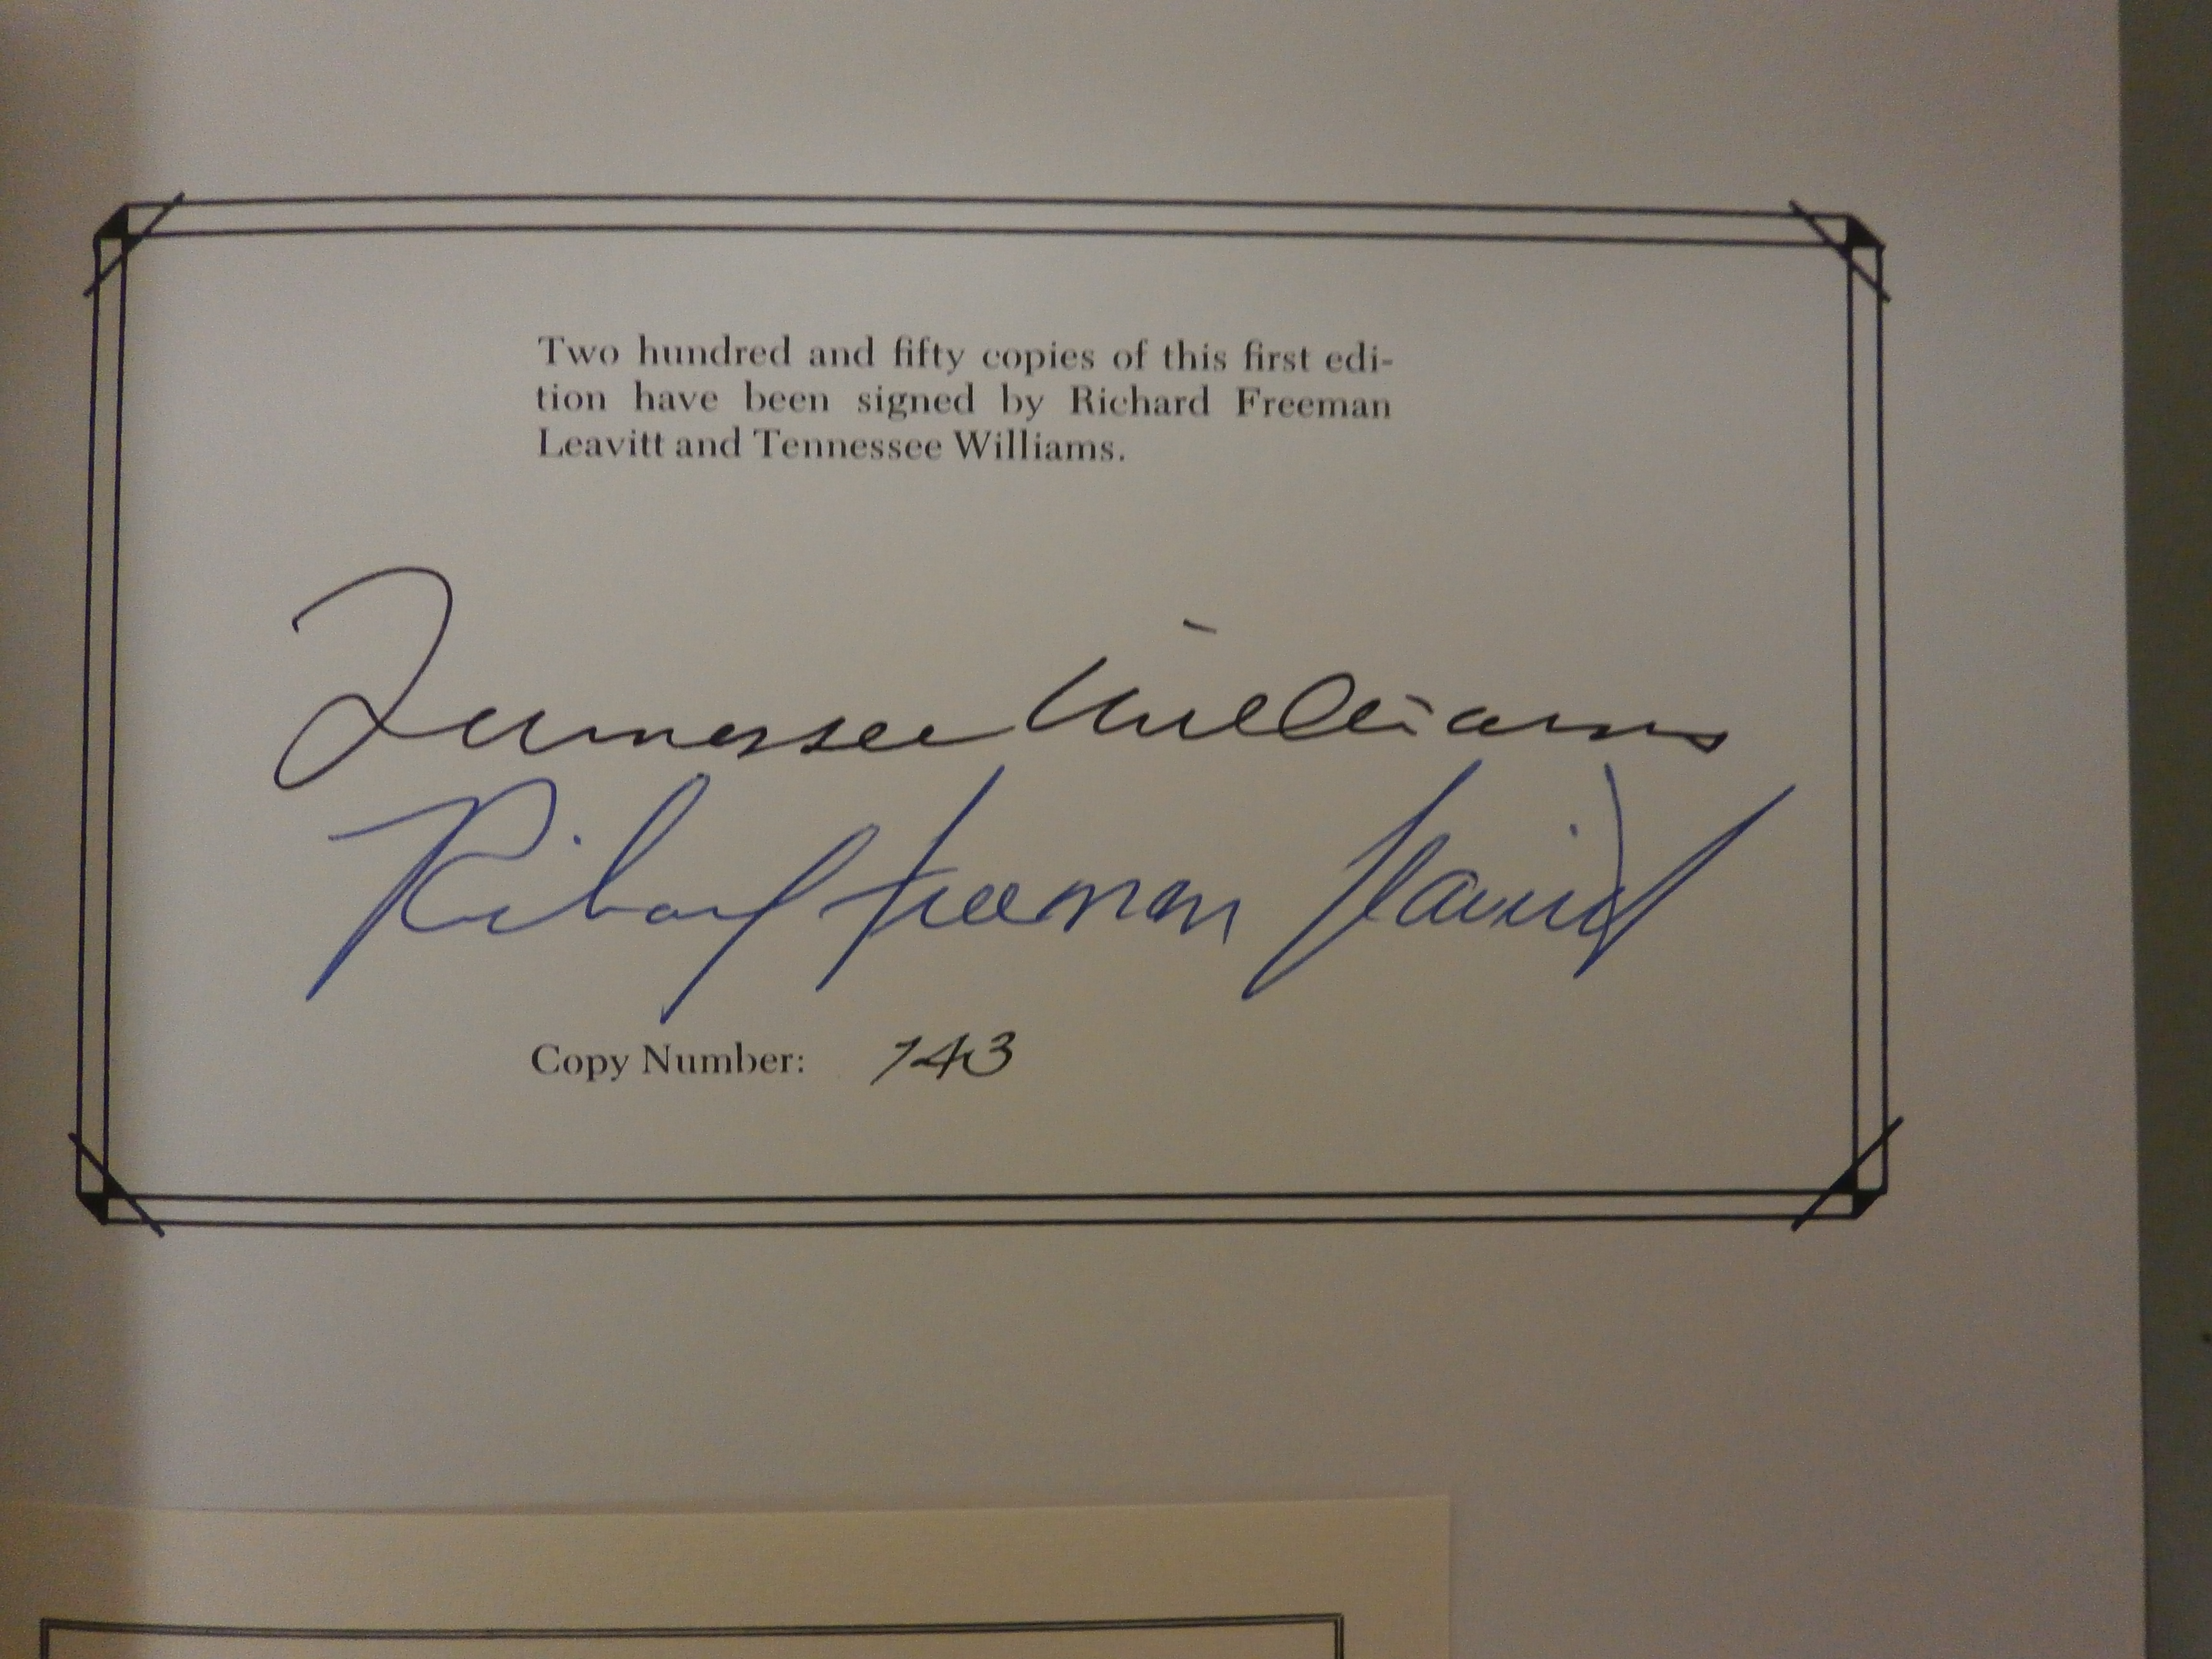 Two hundred and fifty copies of this first edi-
tion have been signed by Richard Freeman
Leavitt and Tennessee Williams.
Tennessee Williams
Richard Freeman Leavitt
Copy Number: 143